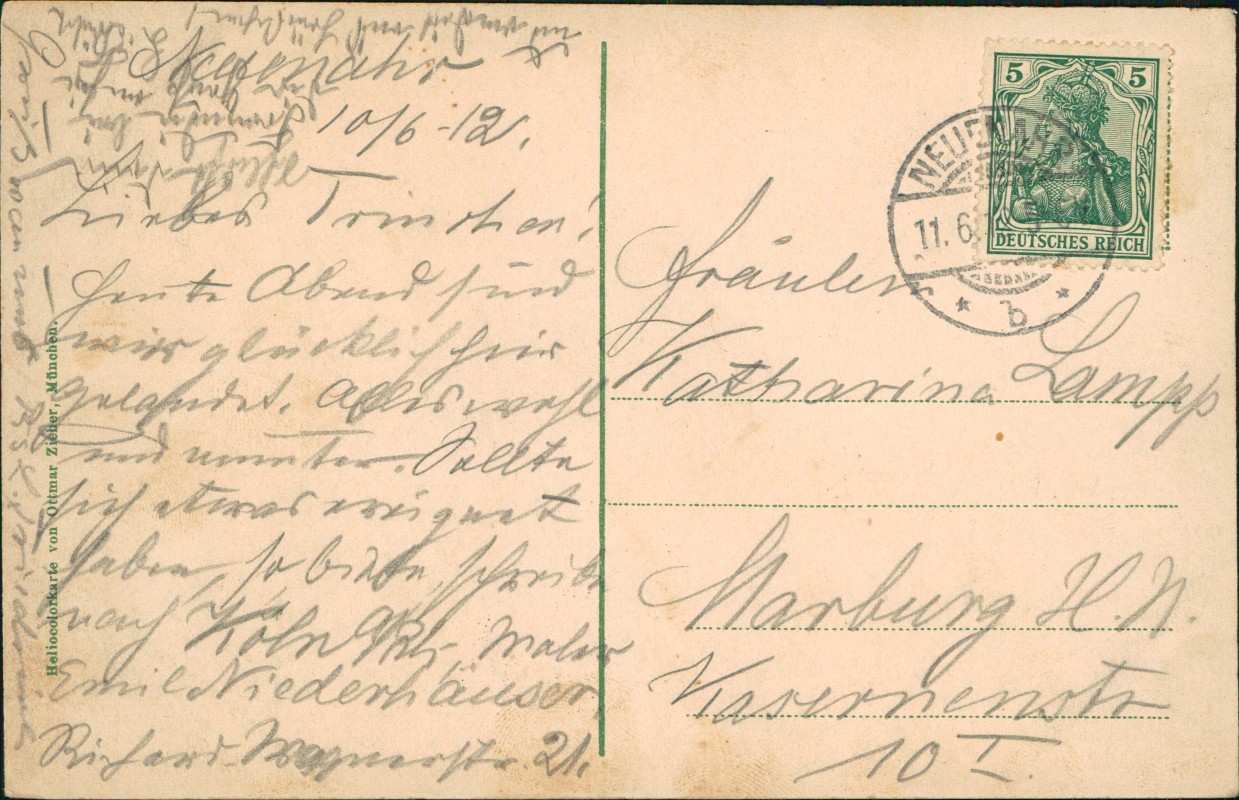 Neuenahr
10/6-12.
Liebes Trinchen!
Heute Abend sind
wir glücklich hier
gelandet. Alles wohl
und munter. Sollte
sich etwas ereignet
haben, so bitte, schreibe
nach Köln a/Rh, Maler
Emil Niederhäuser,
Richard-Wagnerstr. 21.
Heliocolorkarte von Ottmar Zieher, München.
5 5
DEUTSCHES REICH
NEUENAHR
11.6.
* b *
Fräulein
Katharina Lampp
Marburg H.N.
Kasernenstr
10 I.